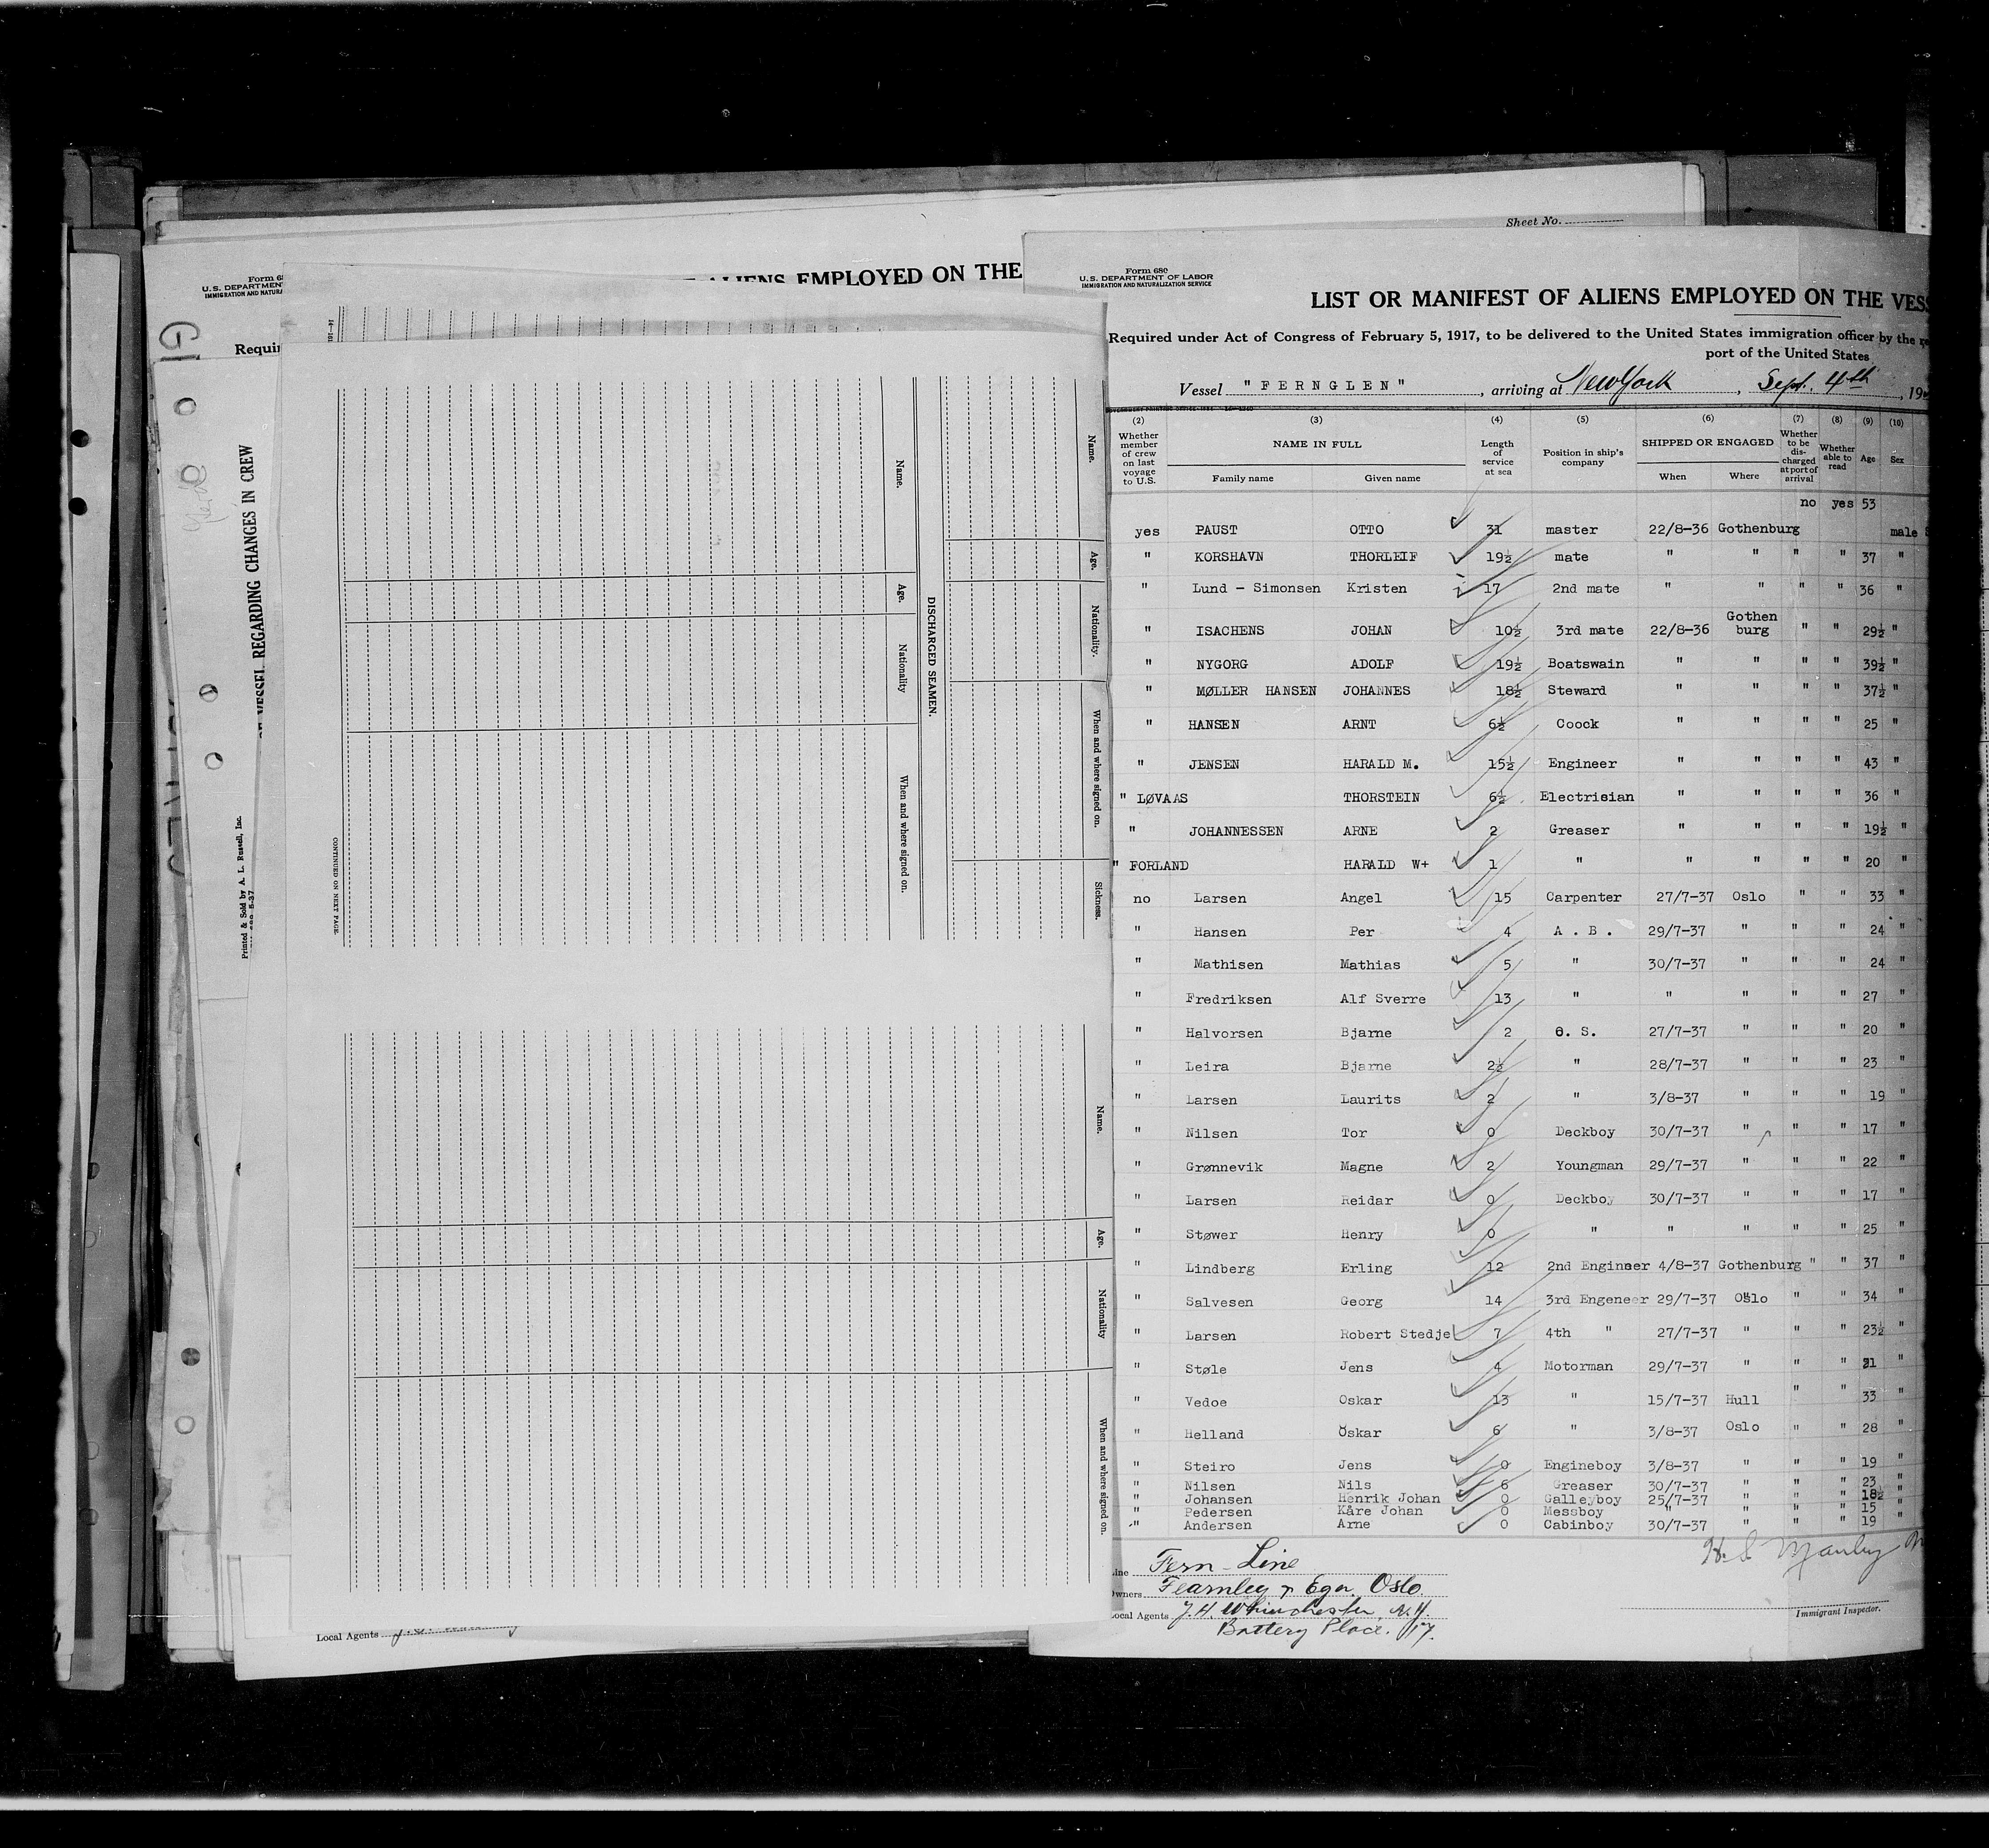 Sheet No.
Form 68
U.S. DEPARTMENT
IMMIGRATION AND NATURA
ALIENS EMPLOYED ON THE
Requir
VESSEL REGARDING CHANGES IN CREW
Printed & Sold by A. L. Russell, Inc.
Name.
Age.
Nationality.
When and where signed on.
Sickness.
DISCHARGED SEAMEN.
Name.
Age.
Nationality
When and where signed on.
CONTINUED ON NEXT PAGE.
Name.
Age.
Nationality
When and where signed on.
Local Agents
Form 680
U.S. DEPARTMENT OF LABOR
IMMIGRATION AND NATURALIZATION SERVICE
LIST OR MANIFEST OF ALIENS EMPLOYED ON THE VESS
Required under Act of Congress of February 5, 1917, to be delivered to the United States immigration officer by the
port of the United States
Vessel "FERNGLEN", arriving at New York, Sept. 4th, 19
(2) (3) (4) (5) (6) (7) (8) (9) (10)
Whether member of crew on last voyage to U.S. NAME IN FULL Family name Given name Length of service at sea Position in ship's company SHIPPED OR ENGAGED When Where Whether to be discharged at port of arrival Whether able to read Age Sex
no yes 53
yes PAUST OTTO 31 master 22/8-36 Gothenburg male
" KORSHAVN THORLEIF 19½ mate " " " " 37 "
" Lund - Simonsen Kristen 17 2nd mate " " " " 36 "
" ISACHENS JOHAN 10½ 3rd mate 22/8-36 Gothen burg " " 29½ "
" NYGORG ADOLF 19½ Boatswain " " " " 39½ "
" MØLLER HANSEN JOHANNES 18½ Steward " " " " 37½ "
" HANSEN ARNT 6½ Coock " " " " 25 "
" JENSEN HARALD M. 15½ Engineer " " " " 43 "
" LØVAAS THORSTEIN 6½ Electrisian " " " " 36 "
" JOHANNESSEN ARNE 2 Greaser " " " " 19½ "
" FORLAND HARALD W+ 1 " " " " " 20 "
no Larsen Angel 15 Carpenter 27/7-37 Oslo " " 33 "
" Hansen Per 4 A.B. 29/7-37 " " " 24 "
" Mathisen Mathias 5 " 30/7-37 " " " 24 "
" Fredriksen Alf Sverre 13 " " " " " 27 "
" Halvorsen Bjarne 2 O. S. 27/7-37 " " " 20 "
" Leira Bjarne 2½ " 28/7-37 " " " 23 "
" Larsen Laurits 2 " 3/8-37 " " " 19 "
" Nilsen Tor 0 Deckboy 30/7-37 " " " 17 "
" Grønnevik Magne 2 Youngman 29/7-37 " " " 22 "
" Larsen Reidar 0 Deckboy 30/7-37 " " " 17 "
" Støwer Henry 0 " " " " " 25 "
" Lindberg Erling 12 2nd Engineer 4/8-37 Gothenburg " " 37 "
" Salvesen Georg 14 3rd Engeneer 29/7-37 Oslo " " 34 "
" Larsen Robert Stedje 7 4th " 27/7-37 " " " 23½ "
" Støle Jens 4 Motorman 29/7-37 " " " 21 "
" Vedoe Oskar 13 " 15/7-37 Hull " " 33 "
" Helland Oskar 6 " 3/8-37 Oslo " " 28 "
" Steiro Jens 0 Engineboy 3/8-37 " " " 19 "
" Nilsen Nils 6 Greaser 30/7-37 " " " 23 "
" Johansen Henrik Johan 0 Galleyboy 25/7-37 " " " 18½ "
" Pedersen Kåre Johan 0 Messboy " " " " 15 "
" Andersen Arne 0 Cabinboy 30/7-37 " " " 19 "
Line Fern-Line
Owners Fearnley & Eger, Oslo.
Local Agents J. H. Whinchester, N.Y.
Battery Place. 17.
Immigrant Inspector.